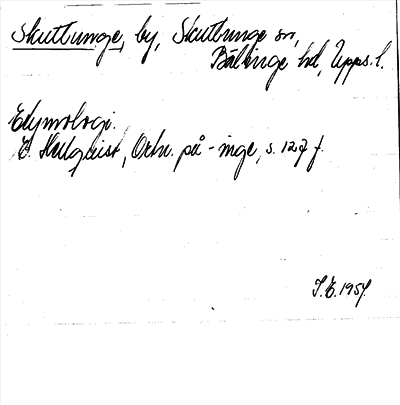 Skuttunge, by, Skuttunge sn,
Bälinge hd, Upps. l.
Etymologi.
E. Hellquist, Ortn. på -inge, s. 127 f.
S.E. 1954.